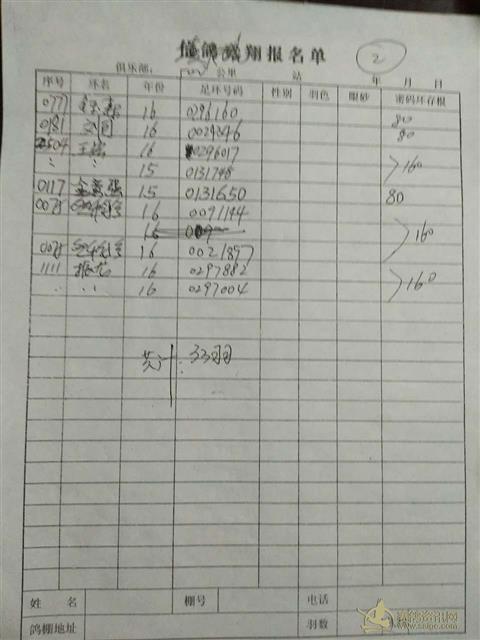 信鸽 翔报名单 2
俱乐部： 公里 站 年 月 日
序号 环名 年份 足环号码 性别 羽色 眼砂 密码环存根
077 16 0296160 80
0181 文问 16 0024346 80
2504 王 16 0296017
〃 〃 15 0131748 160
0117 金 强 15 0131650 80
007 16 0091144
16 160
007 16 0021897
1111 振 16 0297882
〃 〃 16 0297004 160
共计： 33羽
姓 名 棚号 电话
鸽棚地址 羽数
赛鸽资讯网
www.saige.com